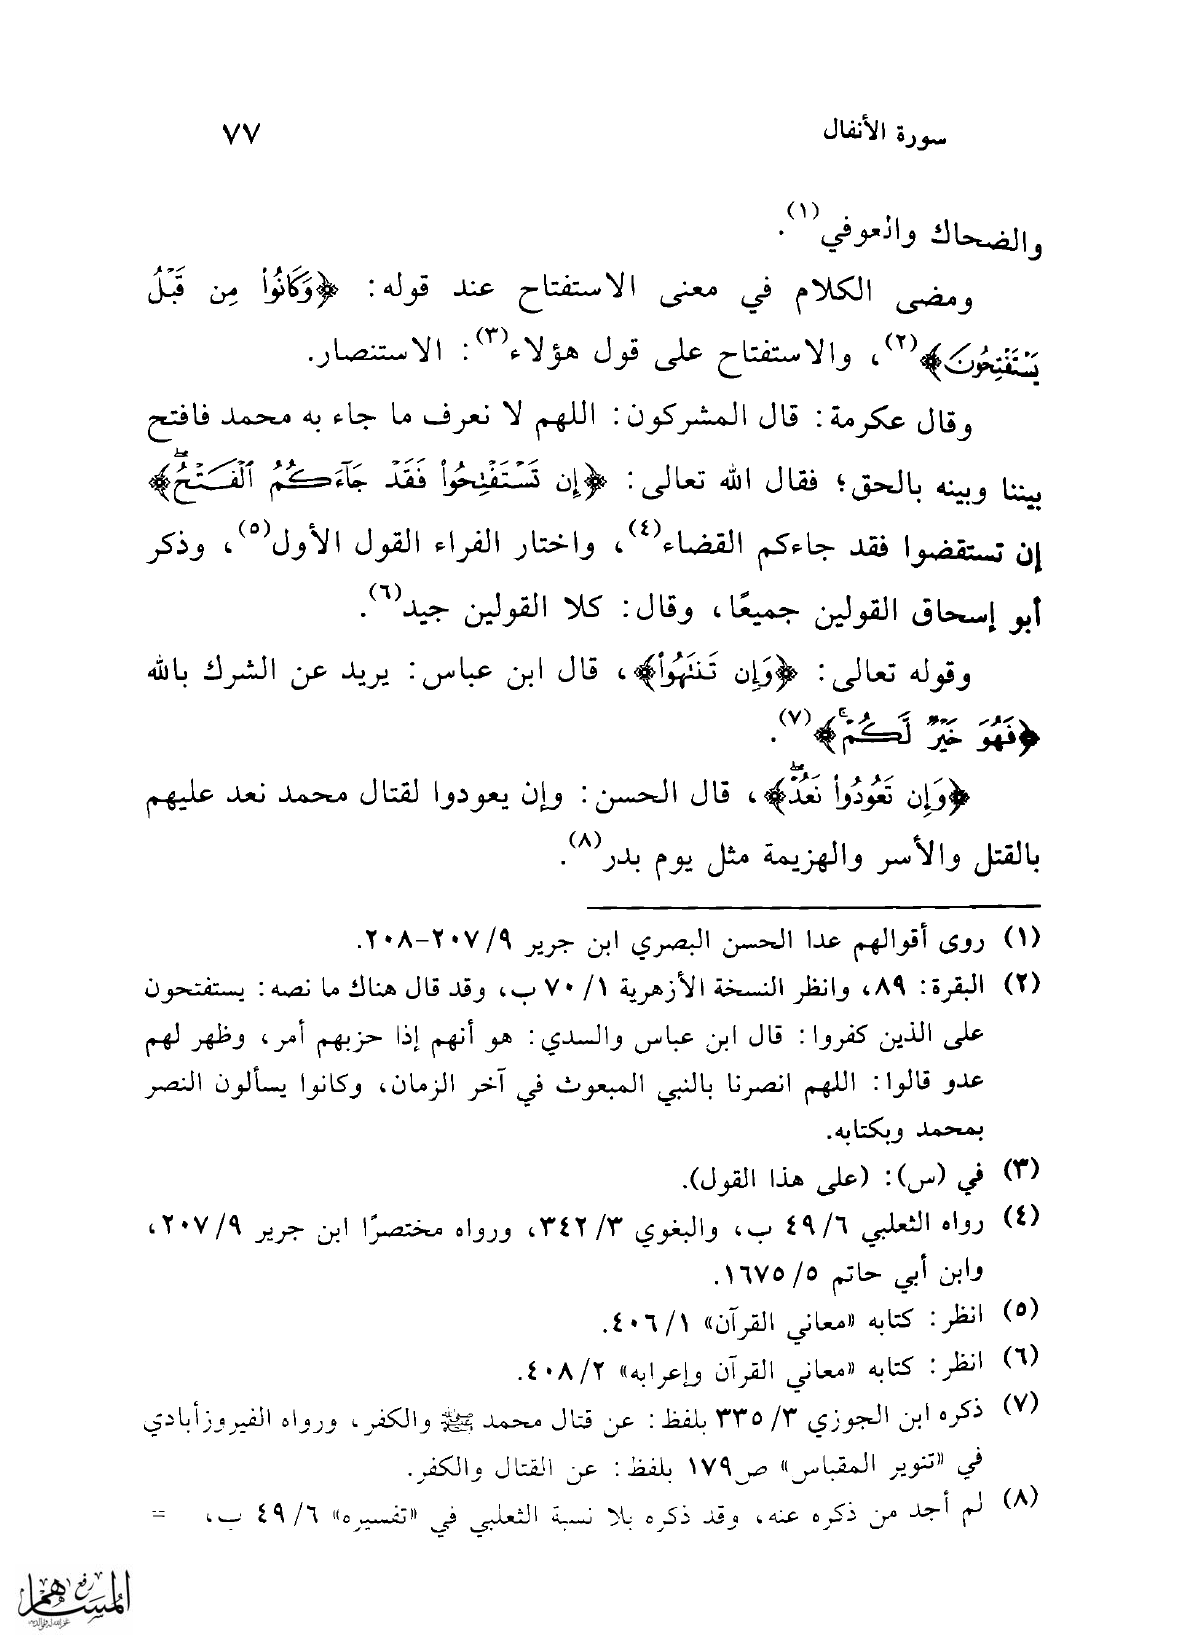 سورة الأنفال ٧٧
والضحاك والعوفي(١).
ومضى الكلام في معنى الاستفتاح عند قوله: ﴿وَكَانُوا۟ مِن قَبْلُ
يَسْتَفْتِحُونَ﴾(٢)، والاستفتاح على قول هؤلاء(٣): الاستنصار.
وقال عكرمة: قال المشركون: اللهم لا نعرف ما جاء به محمد فافتح
بيننا وبينه بالحق؛ فقال الله تعالى: ﴿إِن تَسْتَفْتِحُوا۟ فَقَدْ جَآءَكُمُ ٱلْفَتْحُ ۖ﴾
إن تستقضوا فقد جاءكم القضاء(٤)، واختار الفراء القول الأول(٥)، وذكر
أبو إسحاق القولين جميعًا، وقال: كلا القولين جيد(٦).
وقوله تعالى: ﴿وَإِن تَنتَهُوا۟﴾، قال ابن عباس: يريد عن الشرك بالله
﴿فَهُوَ خَيْرٌ لَّكُمْ ۚ﴾(٧).
﴿وَإِن تَعُودُوا۟ نَعُدْ ۖ﴾، قال الحسن: وإن يعودوا لقتال محمد نعد عليهم
بالقتل والأسر والهزيمة مثل يوم بدر(٨).
(١) روى أقوالهم عدا الحسن البصري ابن جرير ٩/ ٢٠٧-٢٠٨.
(٢) البقرة: ٨٩، وانظر النسخة الأزهرية ١/ ٧٠ ب، وقد قال هناك ما نصه: يستفتحون
على الذين كفروا: قال ابن عباس والسدي: هو أنهم إذا حزبهم أمر، وظهر لهم
عدو قالوا: اللهم انصرنا بالنبي المبعوث في آخر الزمان، وكانوا يسألون النصر
بمحمد وبكتابه.
(٣) في (س): (على هذا القول).
(٤) رواه الثعلبي ٦/ ٤٩ ب، والبغوي ٣/ ٣٤٢، ورواه مختصرًا ابن جرير ٩/ ٢٠٧،
وابن أبي حاتم ٥/ ١٦٧٥.
(٥) انظر: كتابه «معاني القرآن» ١/ ٤٠٦.
(٦) انظر: كتابه «معاني القرآن وإعرابه» ٢/ ٤٠٨.
(٧) ذكره ابن الجوزي ٣/ ٣٣٥ بلفظ: عن قتال محمد ﷺ والكفر، ورواه الفيروزأبادي
في «تنوير المقباس» ص١٧٩ بلفظ: عن القتال والكفر.
(٨) لم أجد من ذكره عنه، وقد ذكره بلا نسبة الثعلبي في «تفسيره» ٦/ ٤٩ ب، =